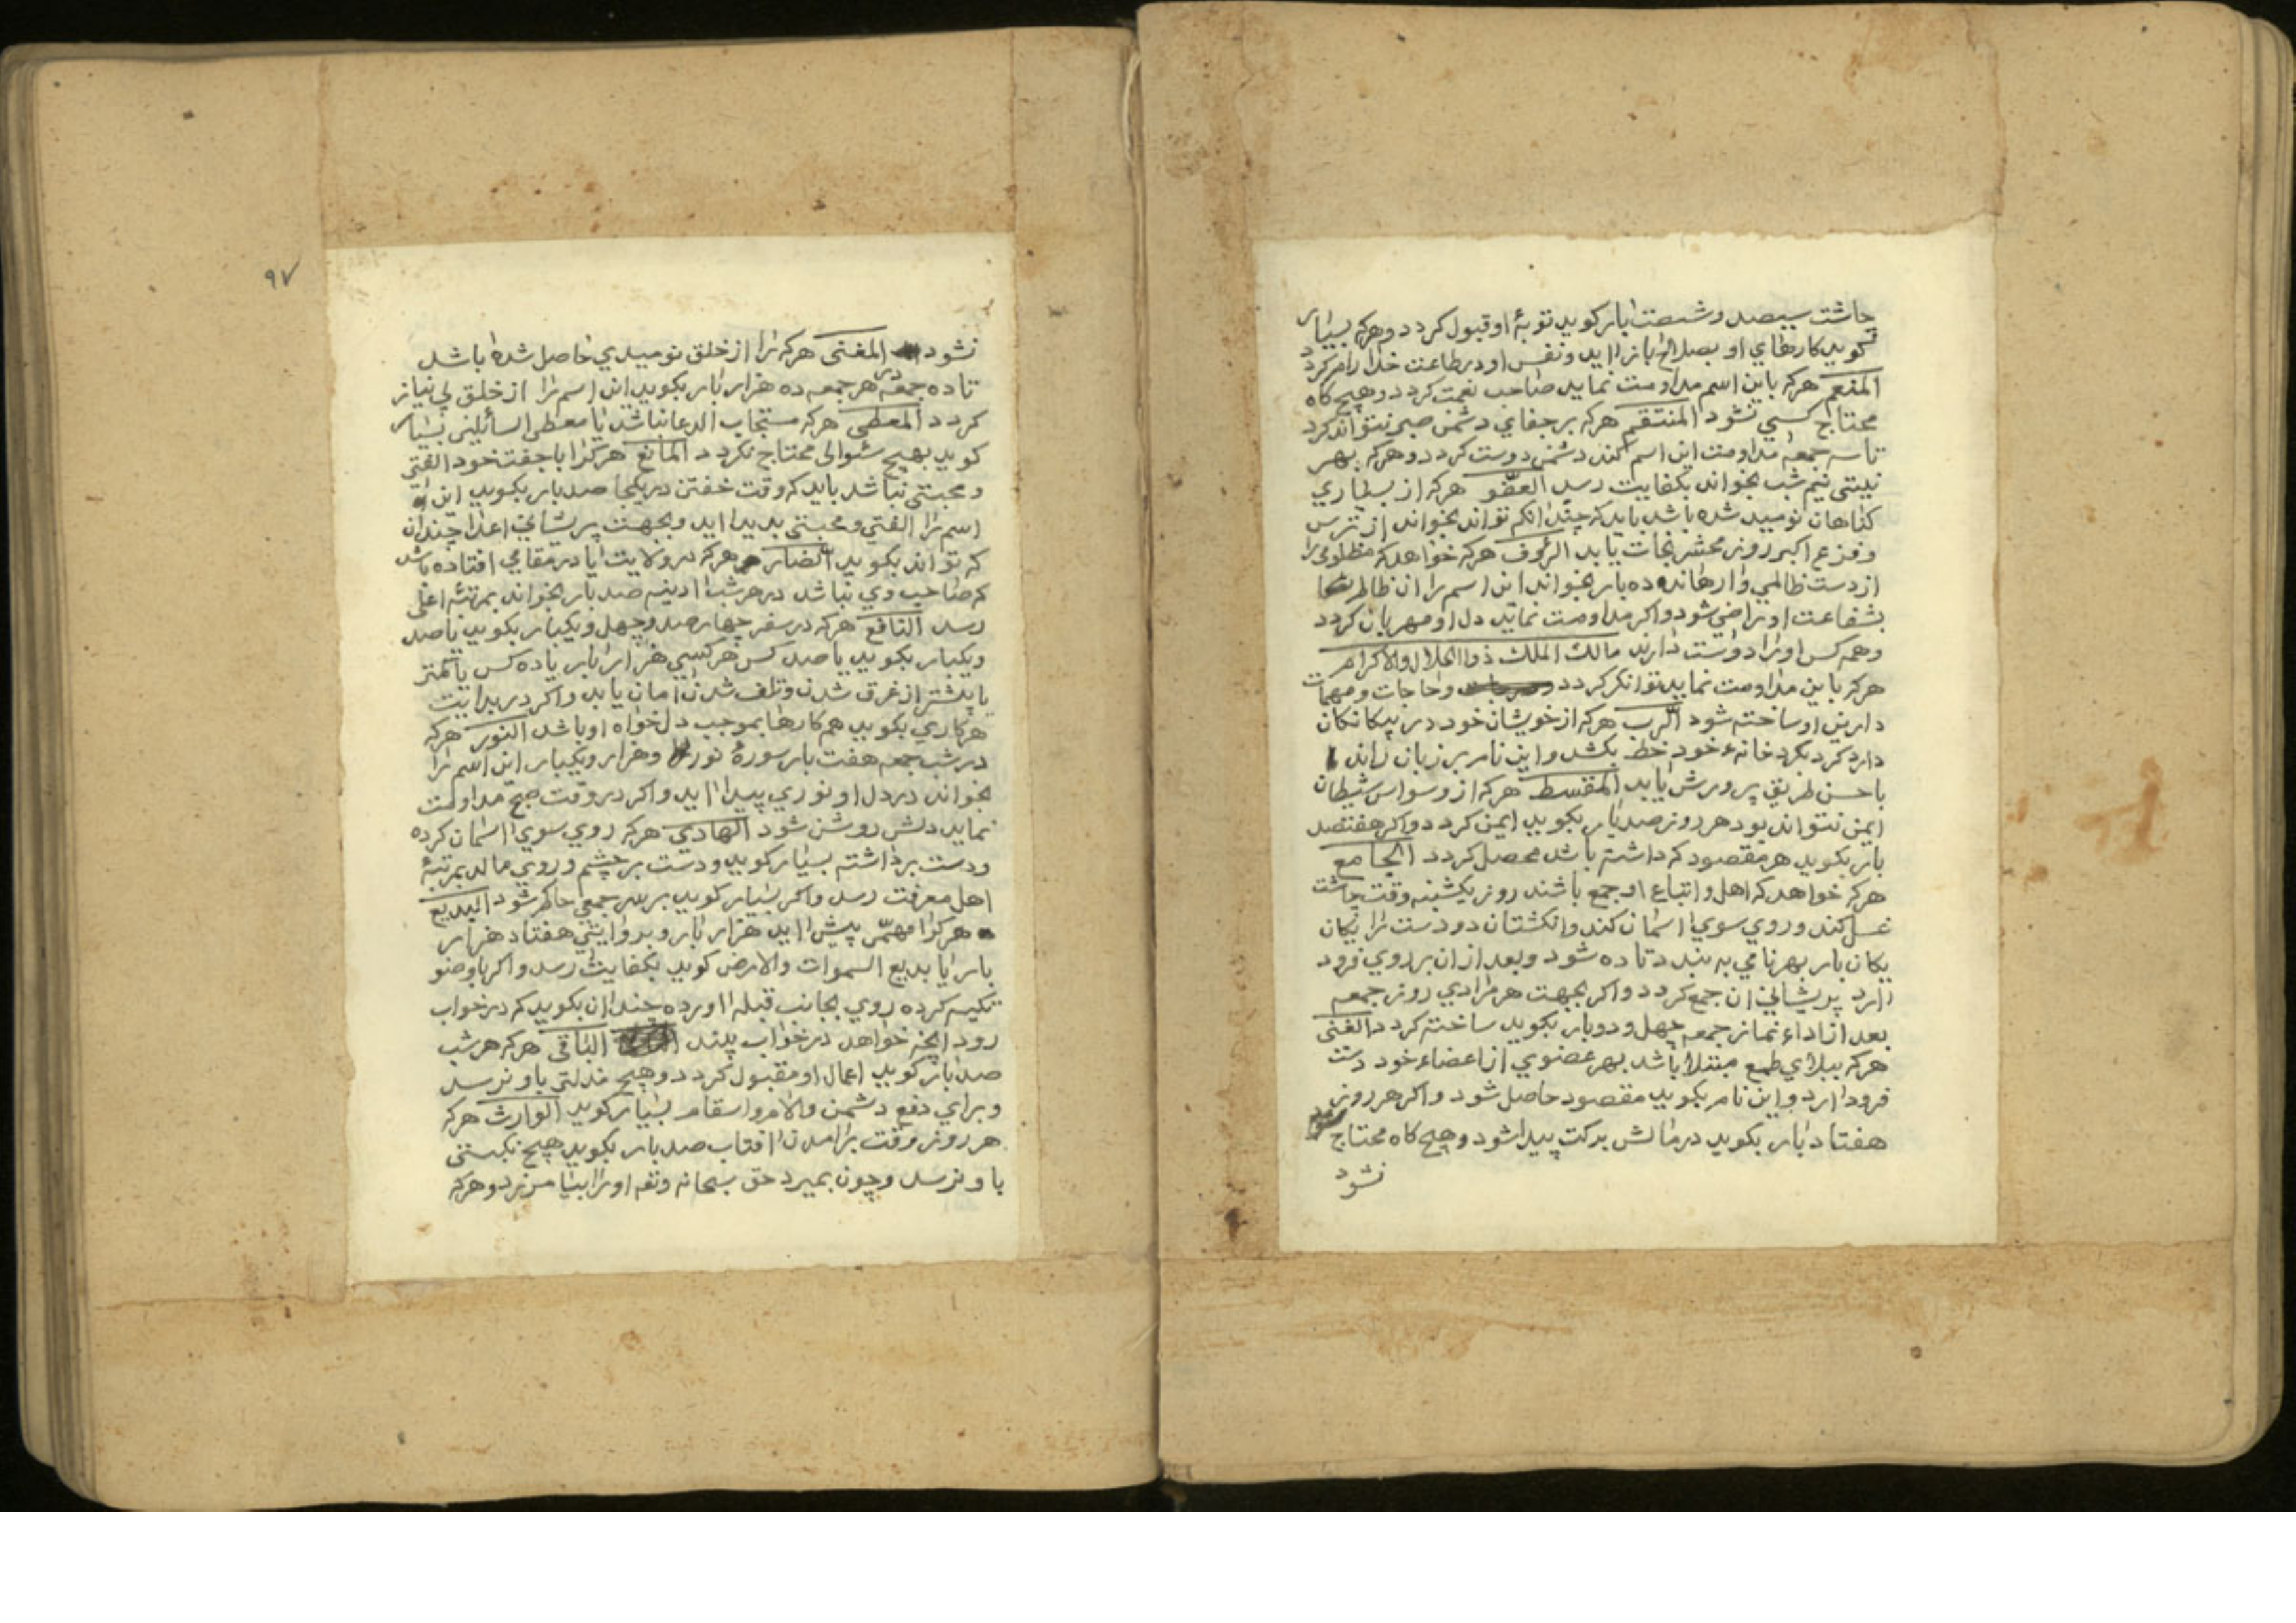 چاشت سیصد و شصت بار کوید توبهٔ او قبول کردد و هرکه بسیار
کوید کارهای او بصلاح باز اید و نفس او در طاعت خدا رام کردد
المنعم هرکه باین اسم مداومت نماید صاحب نعمت کردد و هیچ کاه
محتاج کسی نشود المنتقم هرکه بر جفای دشمن صبر نتواند کرد
تا سه جمعه مداومت این اسم کند دشمن دوست کردد و هرکه بهر
نیتی نیم شب بخواند بکفایت رسد العفو هرکه از بسیاری
کناهان نومید شده باشد باید که چندانکه تواند بخواند از ترس
و فزع اکبر روز محشر نجات یابد الرؤف هرکه خواهد که مظلومی را
از دست ظالمی وارهاند ده بار بخواند این اسم را ان ظالم
بشفاعت او راضی شود و اکر مداومت نماید دل او مهربان کردد
و همه کس او را دوست دارند مالك الملك ذوا الجلال والاکرام
هرکه باین مداومت نماید توانکر کردد و حاجات و مهمات
دارین او ساخته شود الرب هرکه از خویشان خود در
دارد کرد بکرد خانهء خود خط بکشد و این نام بر زبان راند
باحسن طریق پرورش یابد المقسط هرکه از وسواس شیطان
ایمن نتواند بود هر روز صد بار بکوید ایمن کردد و اکر هفتصد
بار بکوید هر مقصود که داشته باشد محصل کردد الجامع
هرکه خواهد که اهل و اتباع او جمع باشند روز یکشنبه وقت چاشت
غسل کند و روی سوی اسمان کند و انکشتان دو دست را یکان
یکان بار بهر نامی به بندد تا ده شود و بعد از ان بر روی فرود
ارد پریشانی ان جمع کردد و اکر بجهت هر مرادی روز جمعه
بعد از اداء نماز جمعه چهل و دو بار بکوید ساخته کردد الغنی
هرکه ببلای طمع مبتلا باشد بهر عضوی از اعضاء خود دست
فرود ارد و این نام بکوید مقصود حاصل شود و اکر هر روز
هفتاد بار بکوید در مالش برکت پیدا شود و هیچ کاه محتاج
نشود
۹۷
نشود المغنی هرکه را از خلق نومیدی حاصل شده باشد
تا ده جمعه در هر جمعه ده هزار بار بکوید این اسم را از خلق بی نیاز
کردد المعطی هرکه مستجاب الدعا نباشد یا معطی السائلین بسیار
کوید بهیچ سٔوالی محتاج نکردد المانع هرکرا با جفت خود الفتی
و محبتی نباشد باید که وقت خفتن در یکجا صد بار بکوید این
اسم را الفتی و محبتی پدید اید و بجهت پریشانی اعدا چندان
که تواند بکوید الضار هرکه در ولایت یا در مقامی افتاده باشد
که صاحب وی نباشد در هر شب ادینه صد بار بخواند بمرتبهٔ اعلی
رسد النافع هرکه در سفر چهار صد و چهل و یکبار بکوید یا صد
و یکبار بکوید یا صد کس هر کسی هزار بار یا ده کس یا کمتر
یا پیشتر از غرق شدن و تلف شدن امان یابد و اکر در بدایت
هر کاری بکوید هم کارها بموجب دلخواه او باشد النور هرکه
در شب جمعه هفت بار سورهٔ نور و هزار و یکبار این اسم را
بخواند در دل او نوری پیدا اید و اکر در وقت صبح مداومت
نماید دلش روشن شود الهادی هرکه روی سوی اسمان کرده
و دست برداشته بسیار کوید و دست بر چشم و روی مالد بمرتبهٔ
اهل معرفت رسد و اکر بسیار کوید بر سر جمعی حاکم شود البدیع
هرکرا مهمّی پیش اید هزار بار و بروایتی هفتاد هزار
بار یا بدیع السموات والارض کوید بکفایت رسد و اکر با وضو
تکیه کرده روی بجانب قبله اورده چندان بکوید که در خواب
رود انچه خواهد در خواب بیند الباقی هرکه هر شب
صد بار کوید اعمال او مقبول کردد و هیچ مذلتی باو نرسد
و برای دفع دشمن والام و اسقام بسیار کوید الوارث هرکه
هر روز وقت برامدن افتاب صد بار بکوید هیچ نکبتی
باو نرسد و چون بمیرد حق سبحانه وتعه او را بیامرزد و هرکه